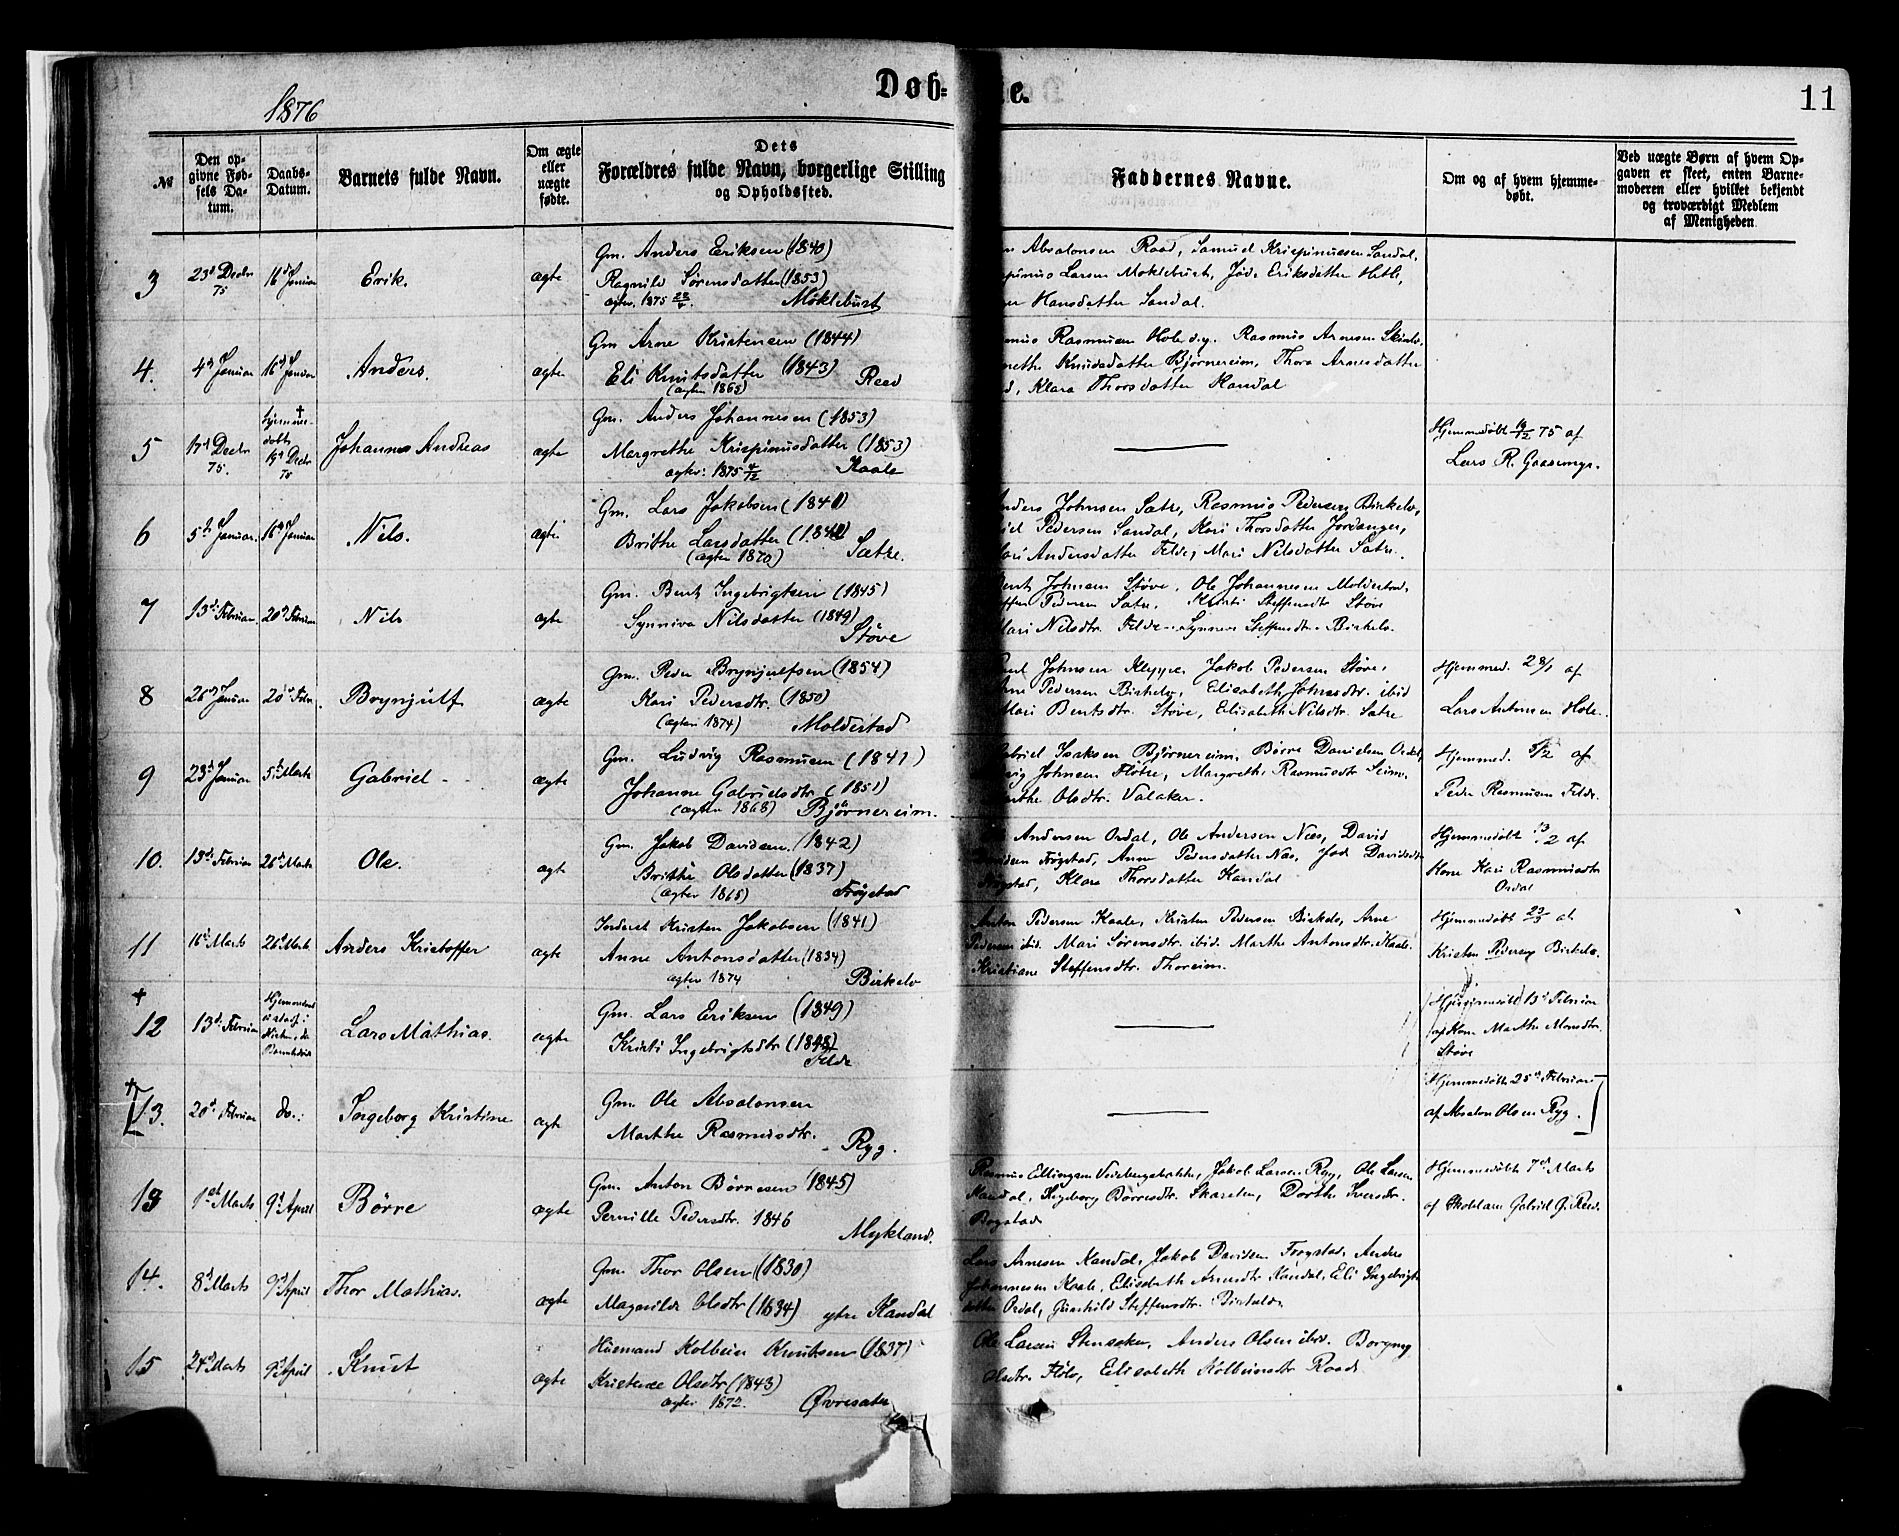 1876
Døb=
te.
11
№
Den op-
givne Fød-
sels Da-
tum.
Daabs-
Datum.
Barnets fulde Navn.
Om ægte
eller
uægte
fødte.
Dets
Forældres fulde Navn, borgerlige Stilling
og Opholdssted.
Faddernes Navne.
Om og af hvem hjemme-
døbt.
Ved uægte Børn af hvem Op-
gaven er skeet, enten Barne-
moderen eller hvilket bekjendt
og troværdigt Medlem
af Menigheden
3
23d Decbr
75
16d Januar
Erik.
ægte
Gm. Anders Eriksen (1840)
Ragnild Sørensdatter (1853)
Møklebust
Absalonsen Raad, Samuel Krispinussen Sandal,
Larsen Moklebust, Eriksdatter Hetle,
Hansdatter Sandal.
4.
4d Januar
16d Januar
Anders.
ægte
Gm Arne Kristensen (1844)
Eli Knutsdatter (1843)
(ægtev 1865)
Reed
Rasmusen Hole d.y. Rasmus Arnesen
Knudsdatter Bjørnereim, Thora Arnesdatter
Klara Thorsdatter Kandal
5
17d Decbr
75.
Hjemme-
døbt
19d Decbr
75
Johannes Andreas
ægte
Gm. Anders Johannesen (1853)
Margrethe Krispinusdatter (1853)
ægtev: 1875 4/12
Kaale
Hjemmedøbt 19/12 75 af
Lars R.
6
5d Januar.
16d Januar
Nils.
ægte
Gm. Lars Jakobsen (1841)
Brithe Larsdatter
(ægtev 1870)
Sætre.
Anders Johnsen Sætre, Rasmus Pedersen Birkelo,
Pedersen Sandal, Kari Thorsdatter Jordanger,
Mari Andersdatter Felde, Mari Nilsdatter Satre.
7
13d Februar.
20d Februar
Nils
ægte
Gm. Bent Ingebrigtsen (1845)
Synniva Nilsdatter (1849)
Støve
Bent Johnsen Støve, Ole Johannesen Moldestad,
Pedersen Satre, Kristi Steffensdtr Støve
Mari Nilsdtr. Felde. Synneve Steffensdtr. Birkelo.
8
26d Januar
20d Febr.
Brynjulf
ægte
Gm. Peder Brynjulfsen (1854)
Kari Pedersdtr. (1850)
(ægtev 1874)
Moldestad
Johnsen Kleppe, Jakob Pedersen Støve,
Pedersen Birkelo, Elisabeth Johnsdtr. ibid
Mari Bentsdtr. Støve, Elisabeth Nilsdtr. Satre
Hjemmed. 28/1 af
Lars Antonsen Hole.
9
23d Januar
5d Marts
Gabriel
ægte
Gm. Ludvig Rasmusen (1841)
Johanne Gabrielsdtr. (1851)
(ægtev 1868)
Bjørnereim.
Gabriel Isaksen Bjørnereim, Børre Danielsen Ordal,
Johnsen Flotre, Margrethe Rasmusdtr Seim,
Olsdtr. Valaker.
Hjemmed. 5/2 af
Peder Rasmusen Felde.
10.
13d Februar
26d Marts
Ole.
ægte
Gm. Jakob Davidsen. (1842)
Brithe Olsdatter (1837)
(ægtev 1865)
Frøystad
Andersen Ordal, Ole Andersen Næs, David
Davidsen Frøystad, Anne Pedersdatter Næs,
Frøystad, Klara Thorsdatter Kandal
Hjemmedøbt 13/2 af
Kone Kari Rasmusdtr
Ordal
11
16d Marts
26d Marts
Anders Kristoffer
ægte
Inderst Kristen Jakobsen (1841)
Anne Antonsdatter (1834)
ægtev 1874
Birkelo
Anton Pedersen Kaale, Kristen Pedersen Birkelo, Arne
Pedersen ibid. Mari Sørensdtr. ibid. Marthe Antonsdtr. Kaale.
Kristiane Steffensdtr. Thoreim.
Hjemmedøbt af
Kristen Pedersen Birkelo.
12
13d Februar
Lars Mathias.
ægte
Gm. Lars Eriksen (1849)
Kristi Ingebrigtsdtr (1848)
Felde
Hjemmedøbt 13d Februar
af Kone Marthe Monsdtr.
Støve
13.
20d Februar
do.:
Ingeborg Kristine
ægte
Gm. Ole Absalonsen
Marthe Rasmusdtr.
Ryg.
Hjemmedøbt 25d Februar
af Absalon Olsen Ryg.
13
1st Marts
9d April
Børre
ægte
Gm. Anton Børresen (1845)
Pernille Pedersdtr. 1846
Mykland.
Rasmus Ellingsen Jakob Larsen Ryg, Ole Larsen
Kandal, Ingeborg Børresdtr. Dorthe Iversdtr.
Bogstad
Hjemmedøbt 7d Marts
af Skolelærer Gabriel G. Reed.
14.
8d Marts
9d April
Thor Mathias.
ægte
Gm. Thor Olsen (1830)
Magnilde Olsdtr (1834)
ytre Kandal
Lars Arnesen Kandal, Jakob Davidsen Frøystad, Anders
Johannesen Kaale, Elisabeth Arnesdtr Kandal, Eli Ingebrigts
datter Ordal, Gunhild Steffensdtr.
15
24d Marts
9d April
Knut
ægte
Huusmand Kolbein Knutsen (1837)
Kristense Olsdtr. (1843)
ægtev 1872.
Øvresatre
Ole Larsen Stensaker, Anders Olsen ibid. Borgny
Olsdtr. Elisabeth Kolbeinsdtr Raad